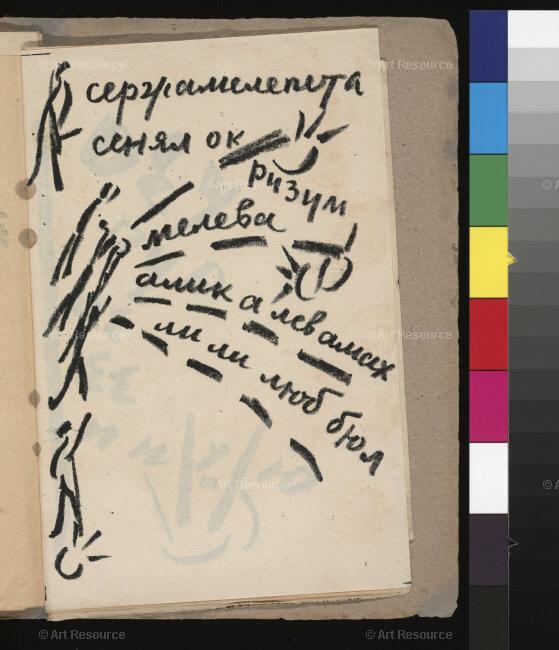 сержамелепета
сенял ок
ризум
мелева
алик а левамах
ли ли люб бюл
Art Resource
Art Resource
Art Resource
Art Resource
Art Resource
Art Resource
Art Resource